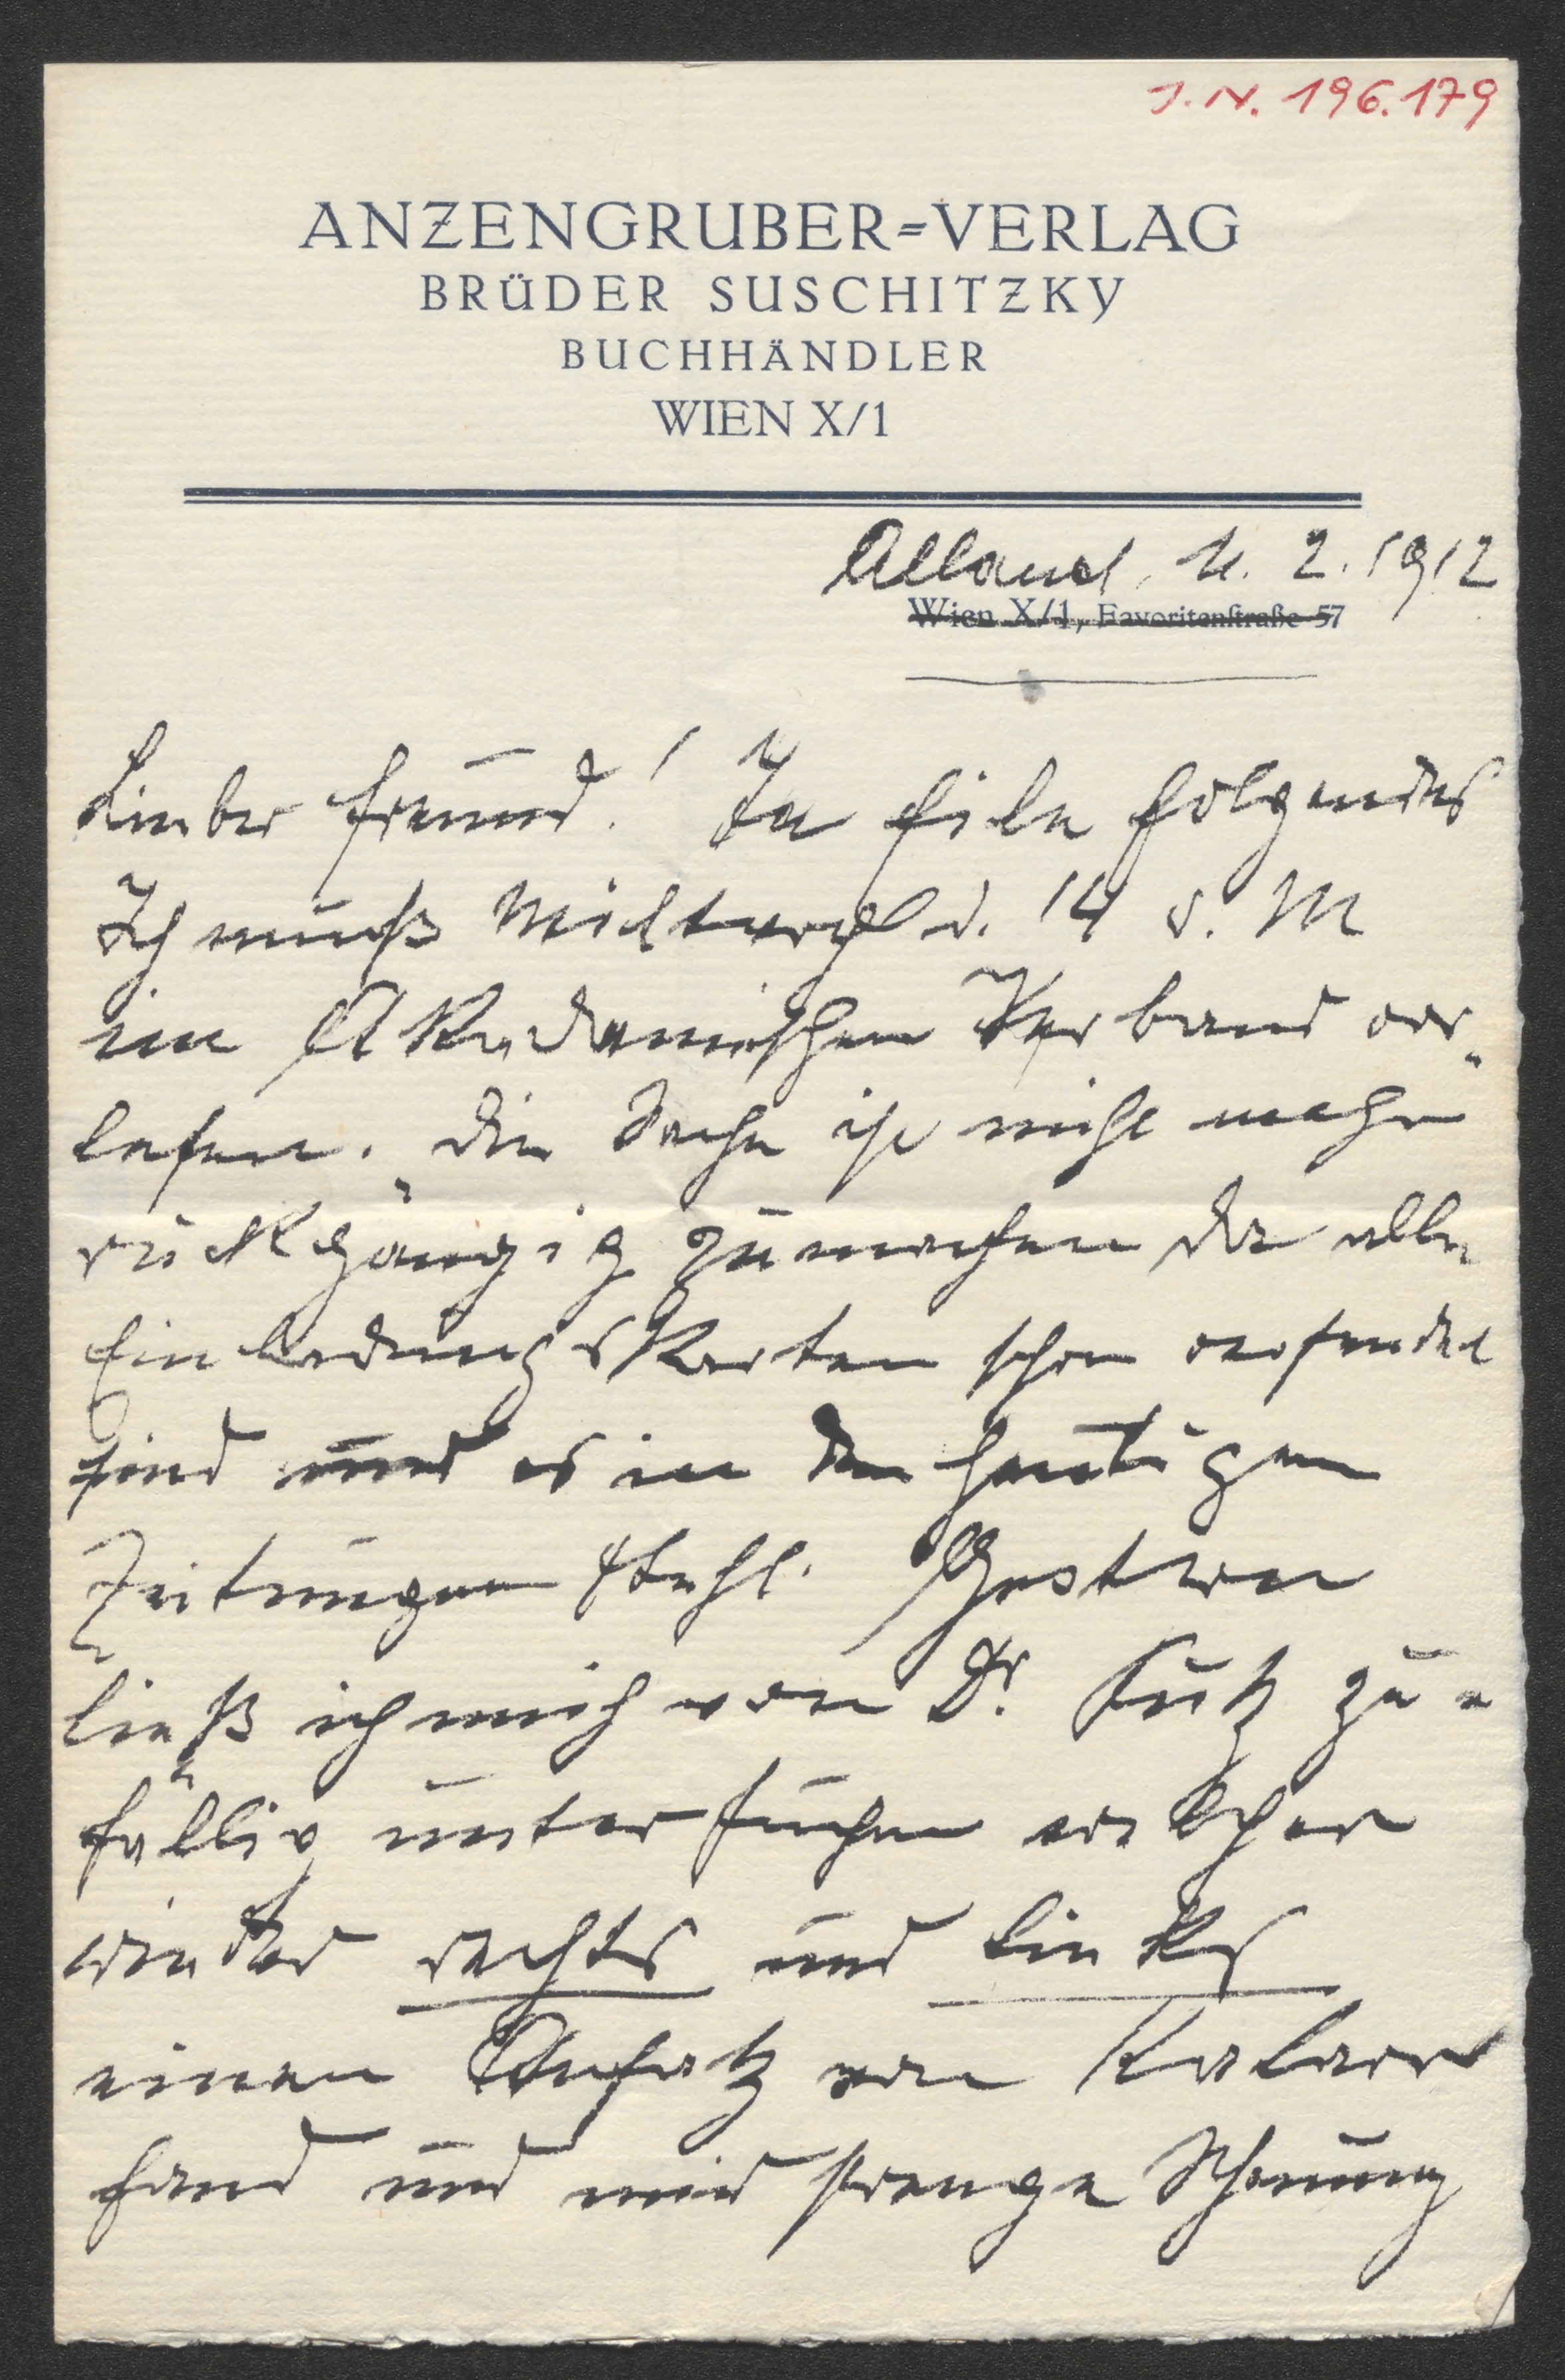 J.N. 196.179
ANZENGRUBER=VERLAG
BRÜDER SUSCHITZKY
BUCHHÄNDLER
WIEN X/1
Alland, 11. 2. 1912
Wien X/1, Favoritenſtraße 57
Lieber Freund! In Eile folgendes
Ich muß Mittwoch d. 14 d. M
im Akademischen Verband vor„
lesen. Die Sache ist nicht mehr
rückgängig zu machen da alle
Einladungskarten schon versendet
sind und es in den heutigen
Zeitungen steht. Gestern
ließ ich mich von Dr. zu„
fällig untersuchen welcher
wieder rechts und links
einen Ansatz von Katarr
fand und mir strenge Schonung